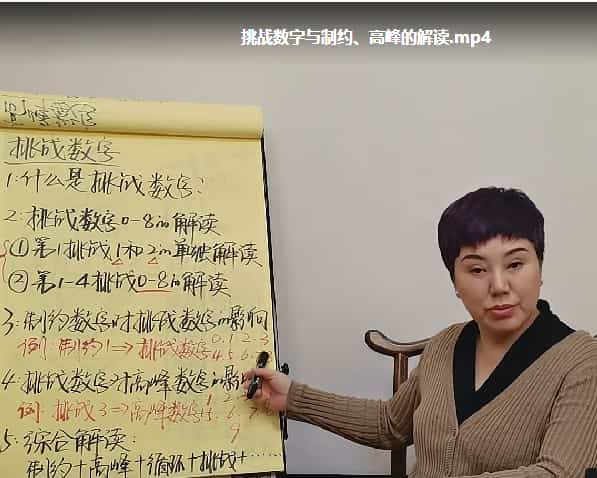 挑战数字与制约、高峰的解读.mp4
挑战数字
1:什么是挑战数字?
2:挑战数字0-8的解读
①第1挑战1和2的单独解读
②第1-4挑战0-8的解读
3:制约数字对挑战数字的影响
例:制约1→挑战数字0.1.2.3
4.5.6
4:挑战数字对高峰数字的影
例:挑战3→高峰数字1.2
5.6.7
9
5:综合解读:
制约+高峰+循环+挑战+……